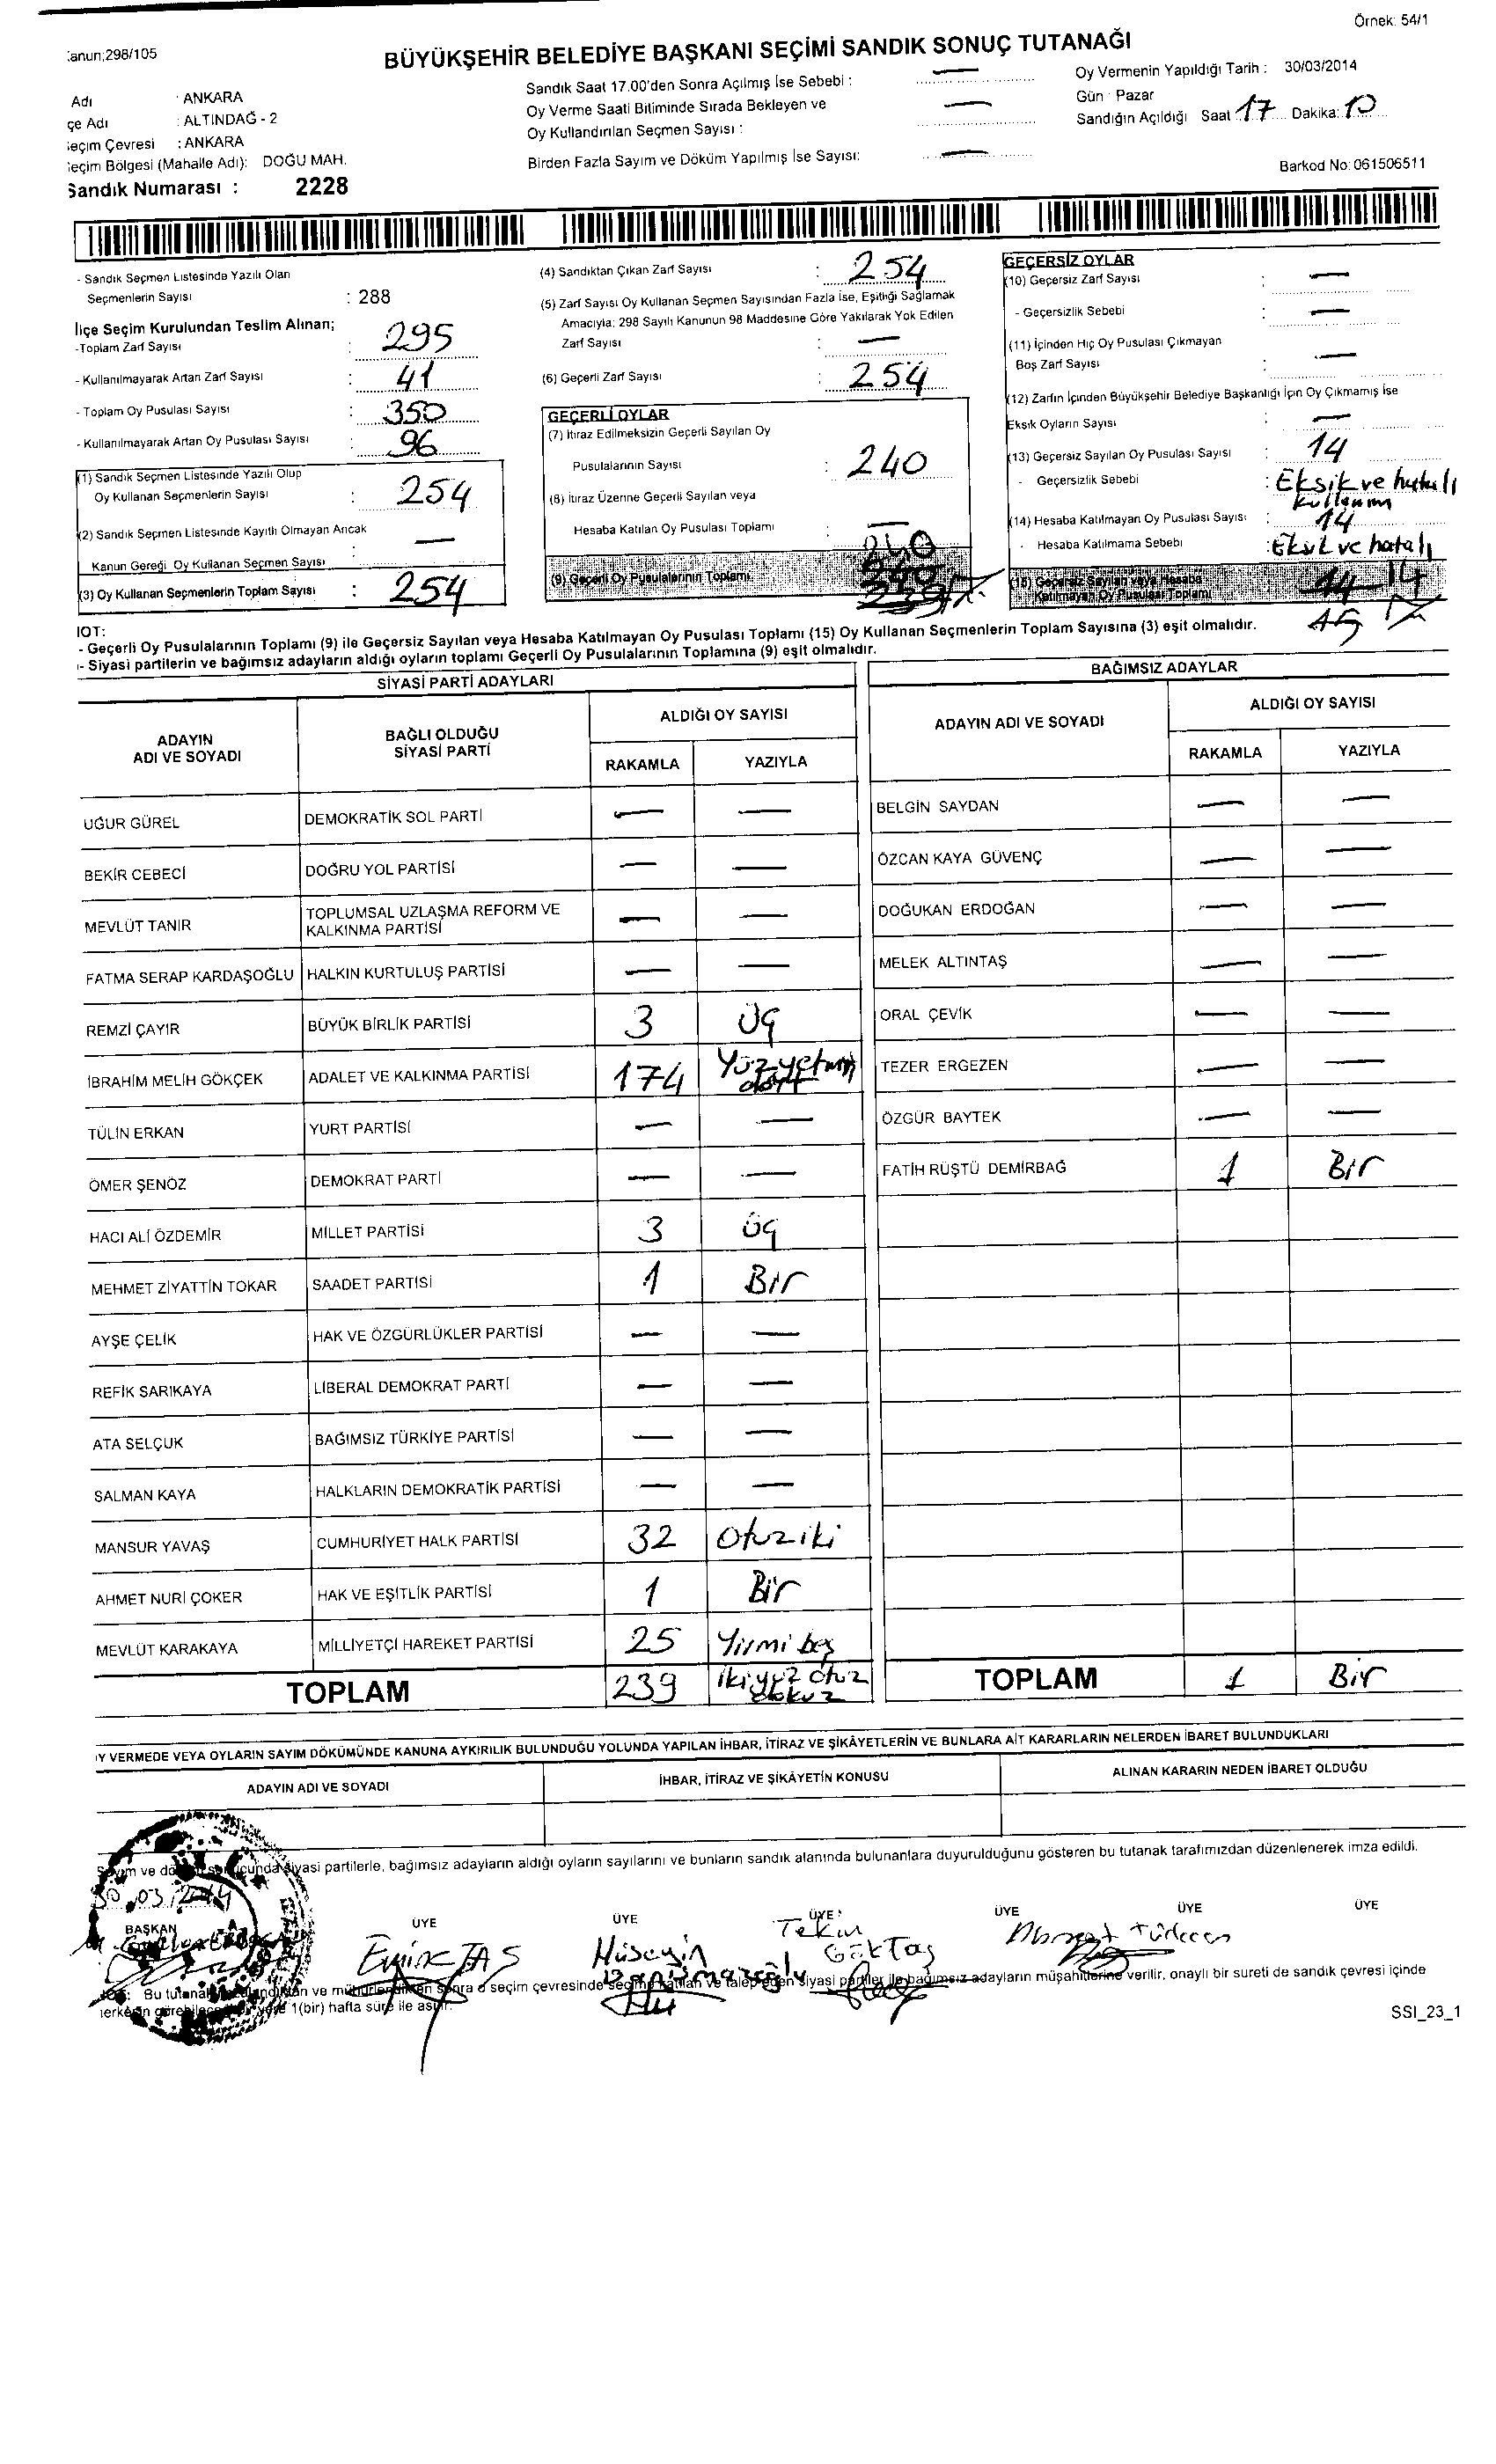 Örnek: 54/1
anun:298/105
BÜYÜKŞEHİR BELEDİYE BAŞKANI SEÇİMİ SANDIK SONUÇ TUTANAĞI
Adı : ANKARA
çe Adı : ALTINDAĞ - 2
eçim Çevresi : ANKARA
eçim Bölgesi (Mahalle Adı): DOĞU MAH.
Sandık Numarası : 2228
Sandık Saat 17.00'den Sonra Açılmış İse Sebebi : —
Oy Verme Saati Bitiminde Sırada Bekleyen ve
Oy Kullandırılan Seçmen Sayısı : —
Birden Fazla Sayım ve Döküm Yapılmış İse Sayısı: —
Oy Vermenin Yapıldığı Tarih : 30/03/2014
Gün : Pazar
Sandığın Açıldığı Saat 17 Dakika: 10
Barkod No: 061506511
- Sandık Seçmen Listesinde Yazılı Olan
Seçmenlerin Sayısı : 288
İlçe Seçim Kurulundan Teslim Alınan;
-Toplam Zarf Sayısı : 295
- Kullanılmayarak Artan Zarf Sayısı : 41
- Toplam Oy Pusulası Sayısı : 350
- Kullanılmayarak Artan Oy Pusulası Sayısı : 96
(1) Sandık Seçmen Listesinde Yazılı Olup
Oy Kullanan Seçmenlerin Sayısı : 254
(2) Sandık Seçmen Listesinde Kayıtlı Olmayan Ancak
Kanun Gereği Oy Kullanan Seçmen Sayısı : —
(3) Oy Kullanan Seçmenlerin Toplam Sayısı : 254
(4) Sandıktan Çıkan Zarf Sayısı : 254
(5) Zarf Sayısı Oy Kullanan Seçmen Sayısından Fazla İse, Eşitliği Sağlamak
Amacıyla; 298 Sayılı Kanunun 98 Maddesine Göre Yakılarak Yok Edilen
Zarf Sayısı : —
(6) Geçerli Zarf Sayısı : 254
GEÇERLİ OYLAR
(7) İtiraz Edilmeksizin Geçerli Sayılan Oy
Pusulalarının Sayısı : 240
(8) İtiraz Üzerine Geçerli Sayılan veya
Hesaba Katılan Oy Pusulası Toplamı : —
(9) Geçerli Oy Pusulalarının Toplamı 240
GEÇERSİZ OYLAR
(10) Geçersiz Zarf Sayısı : —
- Geçersizlik Sebebi : —
(11) İçinden Hiç Oy Pusulası Çıkmayan
Boş Zarf Sayısı : —
(12) Zarfın İçinden Büyükşehir Belediye Başkanlığı İçin Oy Çıkmamış İse
Eksik Oyların Sayısı —
(13) Geçersiz Sayılan Oy Pusulası Sayısı : 14
- Geçersizlik Sebebi : Eksik ve hatalı
kullanım
(14) Hesaba Katılmayan Oy Pusulası Sayısı : 14
- Hesaba Katılmama Sebebi : Eksik ve hatalı
(15) Geçersiz Sayılan veya Hesaba
Katılmayan Oy Pusulası Toplamı 14
15
- Geçerli Oy Pusulalarının Toplamı (9) ile Geçersiz Sayılan veya Hesaba Katılmayan Oy Pusulası Toplamı (15) Oy Kullanan Seçmenlerin Toplam Sayısına (3) eşit olmalıdır.
- Siyasi partilerin ve bağımsız adayların aldığı oyların toplamı Geçerli Oy Pusulalarının Toplamına (9) eşit olmalıdır.
SİYASİ PARTİ ADAYLARI
ADAYIN ADI VE SOYADI BAĞLI OLDUĞU SİYASİ PARTİ ALDIĞI OY SAYISI
RAKAMLA YAZIYLA
UĞUR GÜREL DEMOKRATİK SOL PARTİ — —
BEKİR CEBECİ DOĞRU YOL PARTİSİ — —
MEVLÜT TANIR TOPLUMSAL UZLAŞMA REFORM VE KALKINMA PARTİSİ — —
FATMA SERAP KARDAŞOĞLU HALKIN KURTULUŞ PARTİSİ — —
REMZİ ÇAYIR BÜYÜK BİRLİK PARTİSİ 3 Üç
İBRAHİM MELİH GÖKÇEK ADALET VE KALKINMA PARTİSİ 174 Yüzyetmiş dört
TÜLİN ERKAN YURT PARTİSİ — —
ÖMER ŞENÖZ DEMOKRAT PARTİ — —
HACI ALİ ÖZDEMİR MİLLET PARTİSİ 3 Üç
MEHMET ZİYATTİN TOKAR SAADET PARTİSİ 1 Bir
AYŞE ÇELİK HAK VE ÖZGÜRLÜKLER PARTİSİ — —
REFİK SARIKAYA LİBERAL DEMOKRAT PARTİ — —
ATA SELÇUK BAĞIMSIZ TÜRKİYE PARTİSİ — —
SALMAN KAYA HALKLARIN DEMOKRATİK PARTİSİ — —
MANSUR YAVAŞ CUMHURİYET HALK PARTİSİ 32 Otuziki
AHMET NURİ ÇOKER HAK VE EŞİTLİK PARTİSİ 1 Bir
MEVLÜT KARAKAYA MİLLİYETÇİ HAREKET PARTİSİ 25 Yirmi beş
TOPLAM 239 İkiyüz otuz dokuz
BAĞIMSIZ ADAYLAR
ADAYIN ADI VE SOYADI ALDIĞI OY SAYISI
RAKAMLA YAZIYLA
BELGİN SAYDAN — —
ÖZCAN KAYA GÜVENÇ — —
DOĞUKAN ERDOĞAN — —
MELEK ALTINTAŞ — —
ORAL ÇEVİK — —
TEZER ERGEZEN — —
ÖZGÜR BAYTEK — —
FATİH RÜŞTÜ DEMİRBAĞ 1 Bir
TOPLAM 1 Bir
Y VERMEDE VEYA OYLARIN SAYIM DÖKÜMÜNDE KANUNA AYKIRILIK BULUNDUĞU YOLUNDA YAPILAN İHBAR, İTİRAZ VE ŞİKÂYETLERİN VE BUNLARA AİT KARARLARIN NELERDEN İBARET BULUNDUKLARI
ADAYIN ADI VE SOYADI İHBAR, İTİRAZ VE ŞİKÂYETİN KONUSU ALINAN KARARIN NEDEN İBARET OLDUĞU
siyasi partilerle, bağımsız adayların aldığı oyların sayılarını ve bunların sandık alanında bulunanlara duyurulduğunu gösteren bu tutanak tarafımızdan düzenlenerek imza edildi.
30.03/2014
BAŞKAN ÜYE ÜYE ÜYE ÜYE ÜYE ÜYE
Emin TAŞ Hüseyin Tekin Göktaş Ahmet
Bu seçim çevresinde seçime katılan ve talep eden siyasi partiler ile bağımsız adayların müşahitlerine verilir, onaylı bir sureti de sandık çevresi içinde
1(bir) hafta süre ile asılır.
SSI_23_1